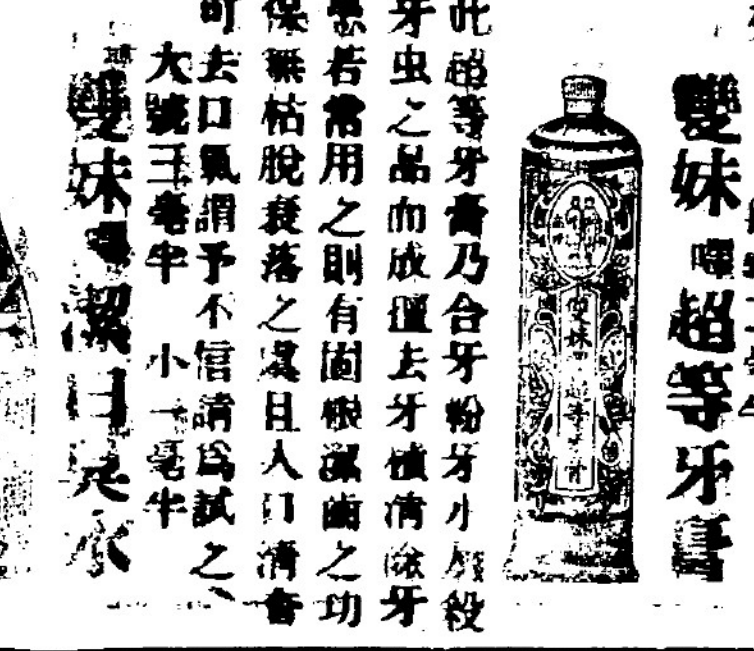 雙妹嘜超等牙膏
雙妹嘜超等牙膏
此超等牙膏乃合牙粉牙水殺
牙虫之品而成擅去牙積清除牙
患若常用之則有固根潔齒之功
保無枯脫衰落之虞且人口清香
可去口氣謂予不信請爲試之、
大號三毫半 小一毫半
雙妹嘜潔口水